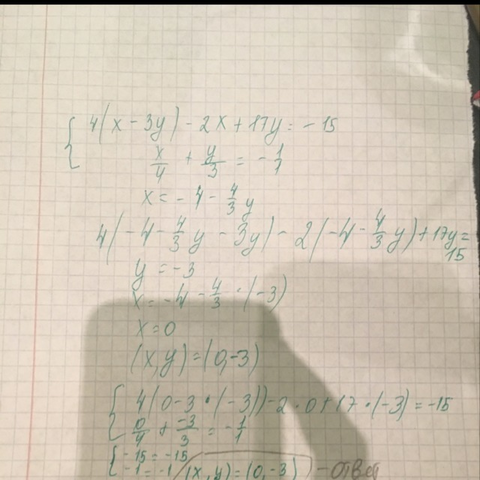 { 4(x - 3y) - 2x + 17y = -15
x/4 + y/3 = -1/1
x = -4 - 4/3 y
4(-4 - 4/3 y - 3y) - 2(-4 - 4/3 y) + 17y = 15
y = -3
x = -4 - 4/3 · (-3)
x = 0
(x, y) = (0, -3)
{ 4(0 - 3 · (-3)) - 2 · 0 + 17 · (-3) = -15
0/4 + -3/3 = -1/1
{ -15 = -15
-1 = -1 (x, y) = (0, -3) - ответ